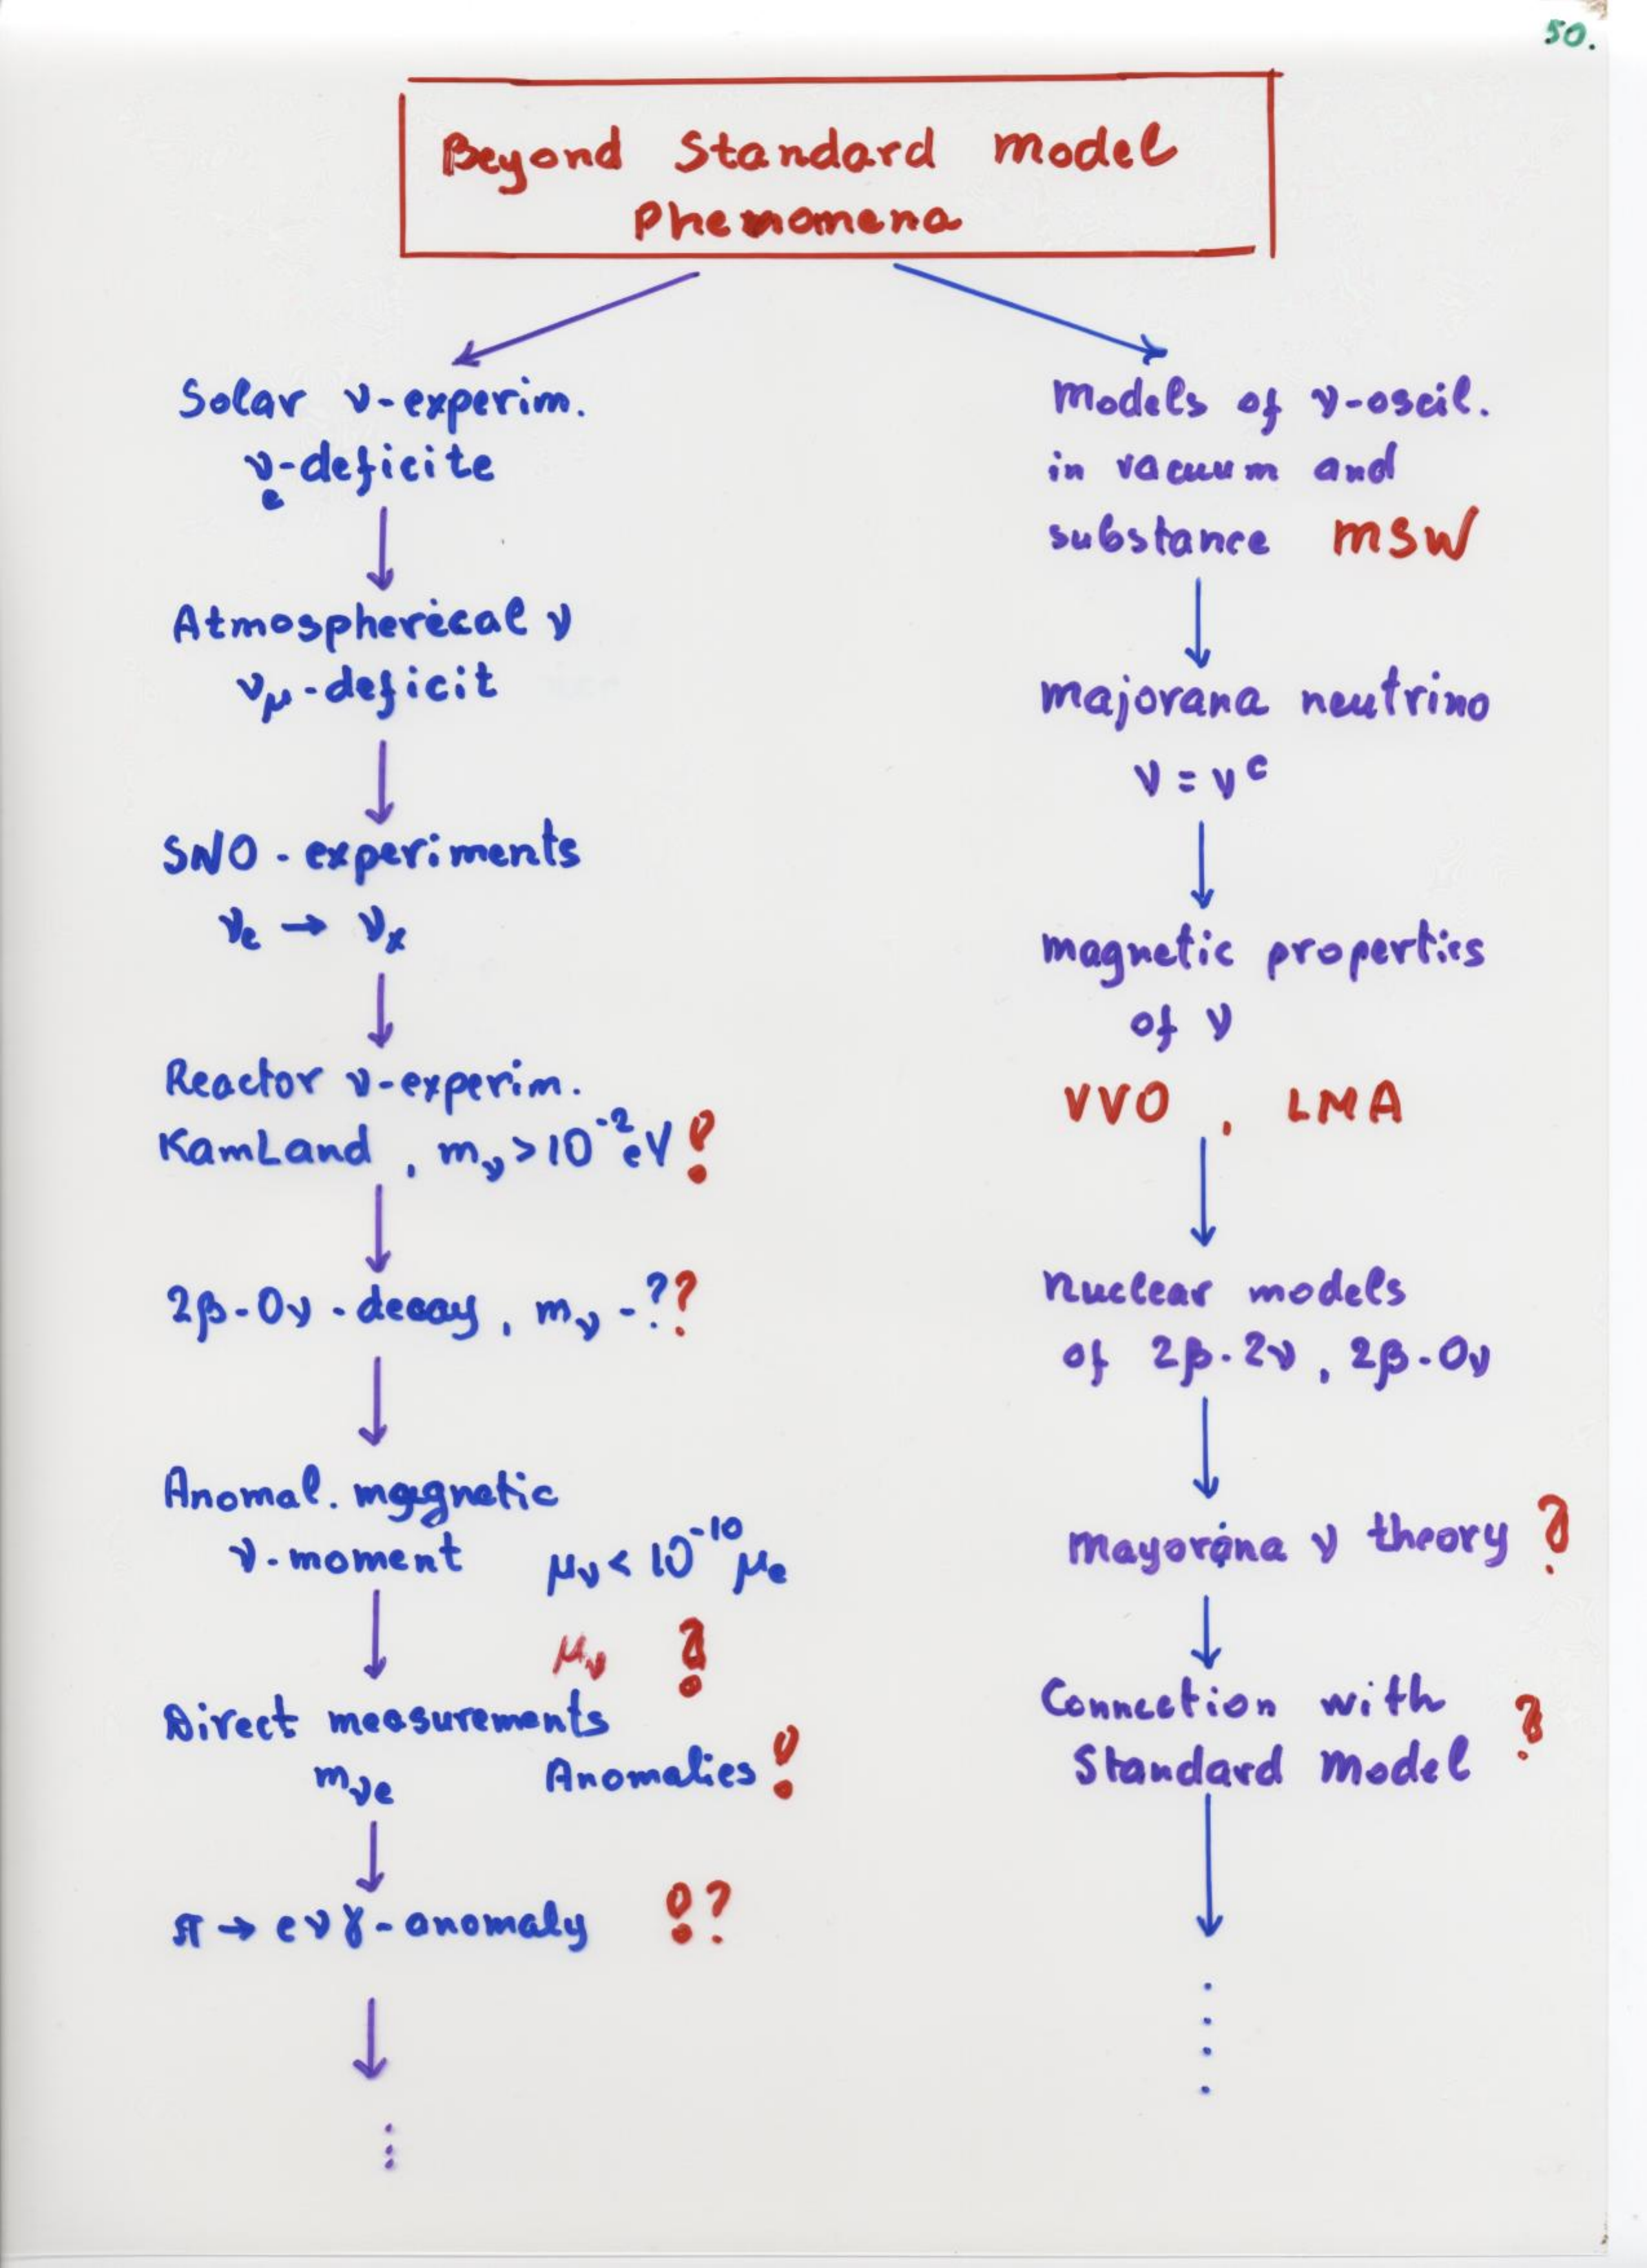 50.
Beyond Standard Model
Phenomena
Solar ν-experim.
νe-deficite
Atmospherical ν
νμ-deficit
SNO - experiments
νe → νx
Reactor ν-experim.
KamLand, mν > 10^-2 eV !
2β-0ν-decay, mν -??
Anomal. magnetic
ν-moment μν < 10^-10 μe
μν ?!
Direct measurements
mνe Anomalies !
π → eνγ - anomaly !?
⋮
Models of ν-oscil.
in vacuum and
substance MSW
Majorana neutrino
ν = ν^c
Magnetic properties
of ν
VVO, LMA
Nuclear models
of 2β-2ν, 2β-0ν
Mayorana ν theory ?
Connection with
Standard Model ?
....